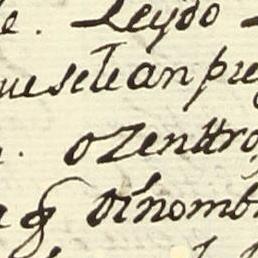 e. Leydo
ue se le an pre
o Zenttro
Oi nomb